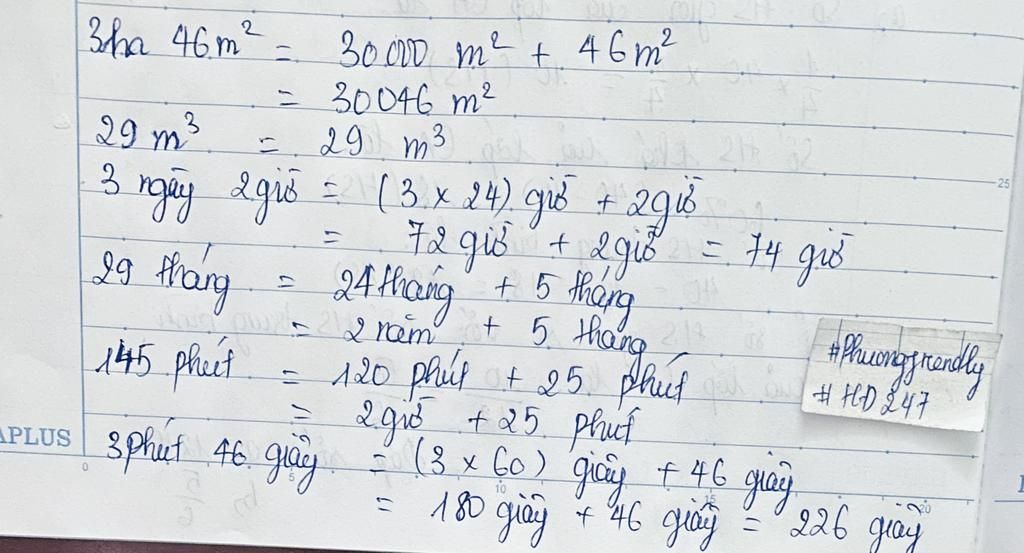 3ha 46m² = 30000 m² + 46m²
= 30046 m²
29 m³ = 29 m³
3 ngày 2giờ = (3 x 24) giờ + 2giờ
= 72 giờ + 2giờ = 74 giờ
29 tháng = 24 tháng + 5 tháng
= 2 năm + 5 tháng
145 phút = 120 phút + 25 phút
= 2giờ + 25 phút
3 phút 46 giây = (3 x 60) giây + 46 giây
= 180 giây + 46 giây = 226 giây
#Phuongfriendly
#HD247
APLUS
0
5
10
15
20
25